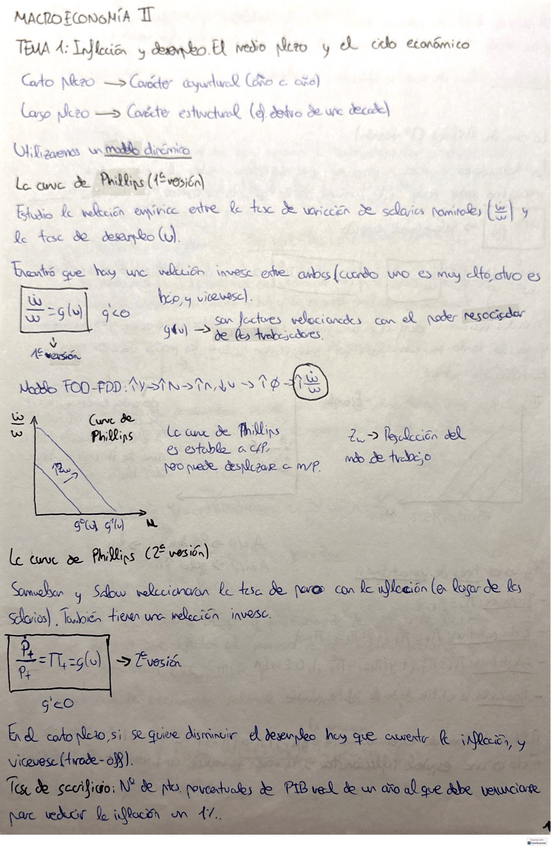 MACROECONOMÍA II
TEMA 1: Inflación y desempleo. El medio plazo y el ciclo económico
Corto plazo → Carácter coyuntural (año a año)
Largo plazo → Carácter estructural (ej. dentro de una decada)
Utilizaremos un modelo dinámico
La curva de Phillips (1ª versión)
Estudio la relación empírica entre la tasa de variación de salarios nominales (ẇ/w) y
la tasa de desempleo (u).
Encontró que hay una relación inversa entre ambas (cuando uno es muy alto, otro es
bajo, y viceversa).
ẇ/w = g(u) g'<0
g(u) → son factores relacionados con el poder negociador
de los trabajadores.
↓
1ª versión
Modelo FOD-FDD: ↑Y→↑N→↑n, ↓u →↑ø→↑ẇ/w
ẇ/w
Curva de
Phillips
↑Zw
g⁰(u) g¹(u)
La curva de Phillips
es estable a c/p,
pero puede desplazarse a m/p.
Zw → Regulación del
mdo de trabajo
La curva de Phillips (2ª versión)
Samuelson y Solow relacionaron la tasa de paro con la inflación (en lugar de los
salarios). También tienen una relación inversa.
Ṗt/Pt = Πt = g(u) → 2ª versión
g'<0
En el corto plazo, si se quiere disminuir el desempleo hay que aumentar la inflación, y
viceversa (trade-off).
Tasa de sacrificio: Nº de ptos porcentuales de PIB real de un año al que debe renunciarse
para reducir la inflación un 1%.
1